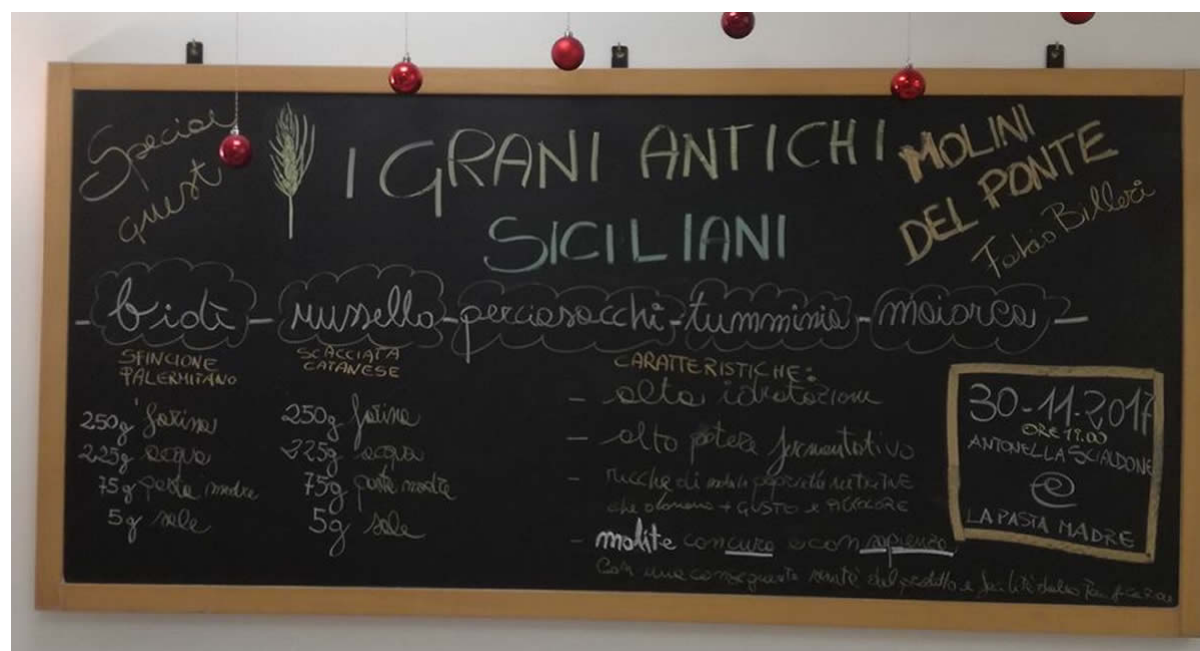 Special
guest
I GRANI ANTICHI
SICILIANI
MOLINI
DEL PONTE
Fabio Billeri
- bidì - russello - perciasacchi - tumminia - maiorca -
SFINCIONE
PALERMITANO
250g farina
225g acqua
75g pasta madre
5g sale
SCACCIATA
CATANESE
250g farina
225g acqua
75g pasta madre
5g sale
CARATTERISTICHE:
- alta idratazione
- alto potere fermentativo
- ricche di proprietà nutritive
che donano + GUSTO e
- molite con cura e con sapienza
Con una conseguente del prodotto e
30-11-2017
ORE 19.00
ANTONELLA SCIALDONE
@
LA PASTA MADRE